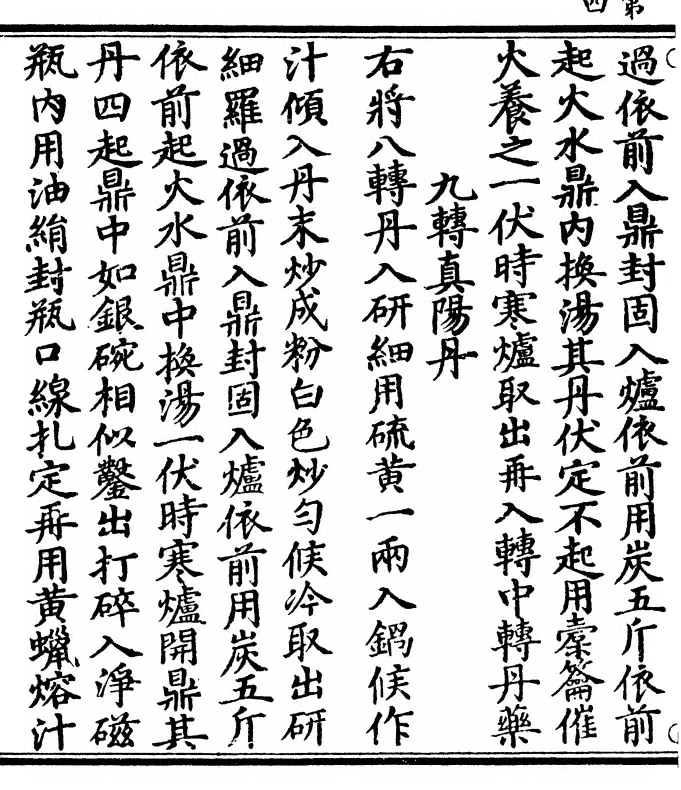 第四
過依前入鼎封固入爐依前用炭五斤依前
起火水鼎內換湯其丹伏定不起用橐籥催
火養之一伏時寒爐取出再入轉中轉丹藥
九轉真陽丹
右將八轉丹入研細用硫黃一兩入鍋候作
汁傾入丹末炒成粉白色炒勻候冷取出研
細羅過依前入鼎封固入爐依前用炭五斤
依前起火水鼎中換湯一伏時寒爐開鼎其
丹四起鼎中如銀碗相似鑿出打碎入淨磁
瓶內用油絹封瓶口線扎定再用黃蠟熔汁